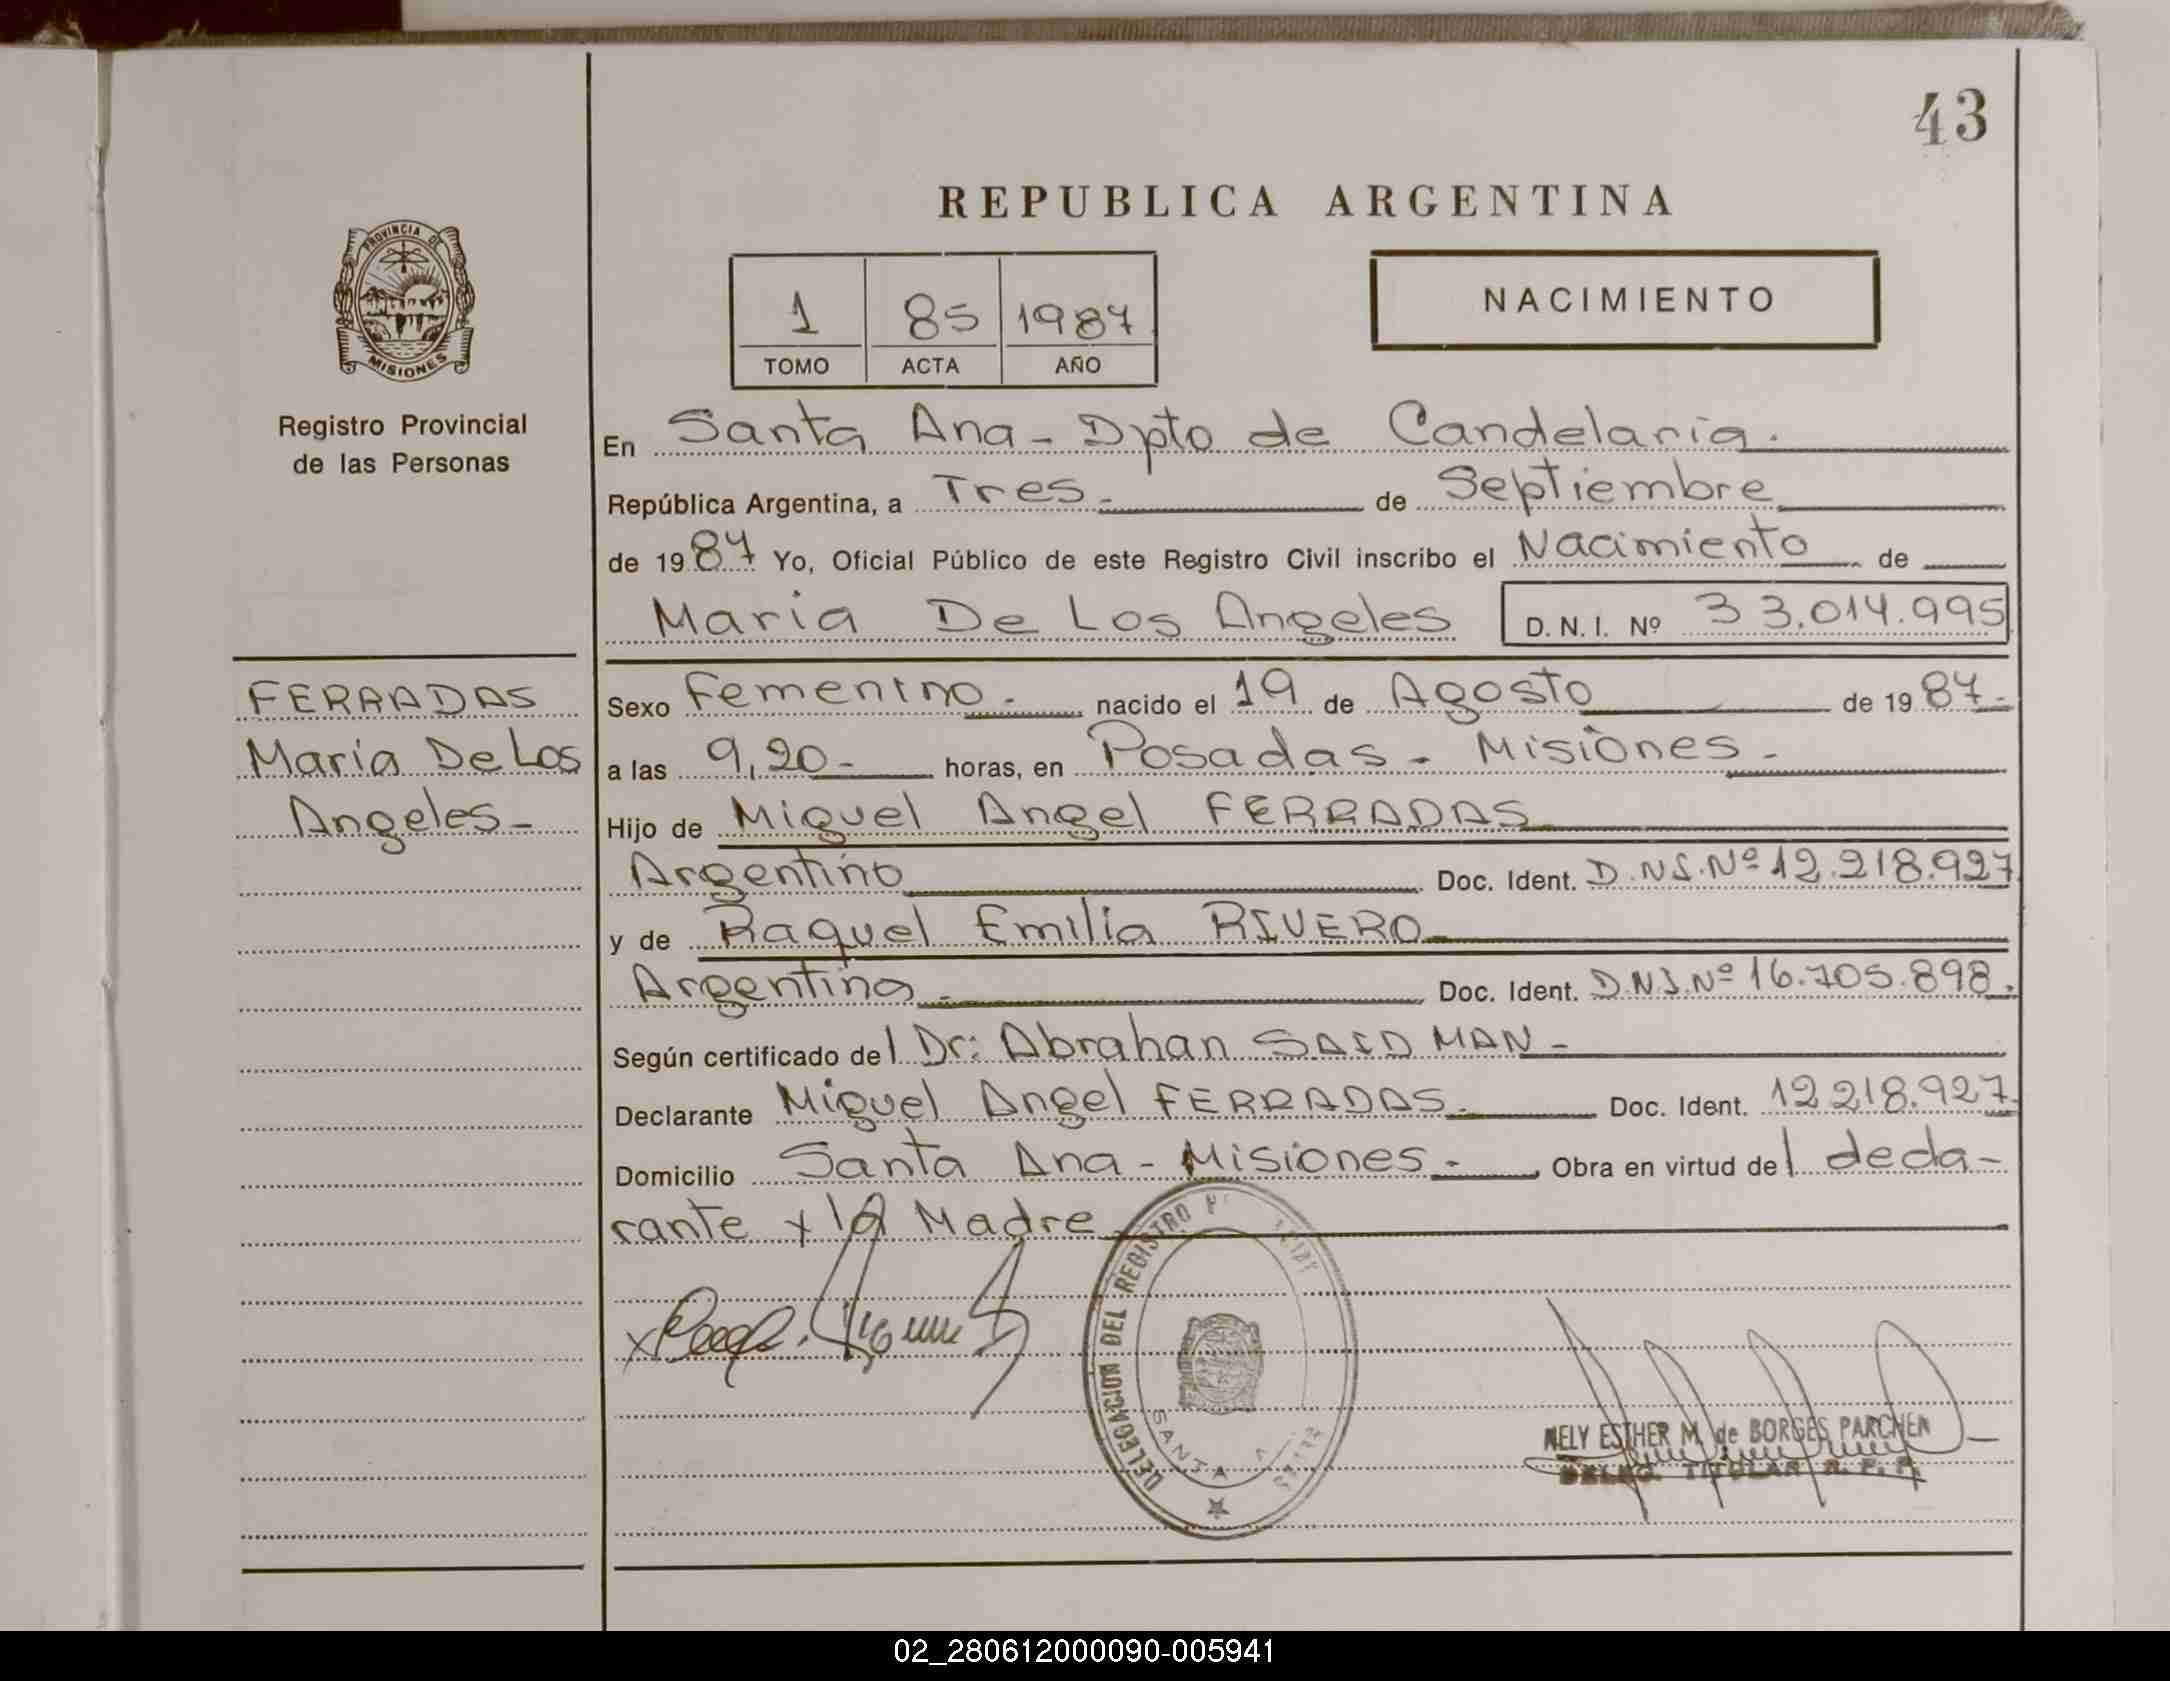 43
REPUBLICA ARGENTINA
PROVINCIA DE
MISIONES
1 85 1987
TOMO ACTA AÑO
NACIMIENTO
Registro Provincial
de las Personas
En Santa Ana - Dpto de Candelaria.
República Argentina, a Tres.- de Septiembre
de 1987 Yo, Oficial Público de este Registro Civil inscribo el Nacimiento de
Maria De Los Angeles D.N.I. Nº 33.014.995
FERRADAS
Maria De Los
Angeles -
Sexo Femenino.- nacido el 19 de Agosto de 1987.-
a las 9,20- horas, en Posadas - Misiones -
Hijo de Miguel Angel FERRADAS
Argentino Doc. Ident. D.N.I.Nº 12.218.927
y de Raquel Emilia RIVERO
Argentina.- Doc. Ident. D.N.I.Nº 16.705.898.
Según certificado del Dr: Abrahan SAIDMAN -
Declarante Miguel Angel FERRADAS.- Doc. Ident. 12 218.927.
Domicilio Santa Ana - Misiones.- Obra en virtud del decla-
rante y la Madre
DELEGACION DEL REGISTRO
SANTA
NELY ESTHER M. de BORGES PARCHEN
DELEG. TITULAR R. P. P.
02_280612000090-005941